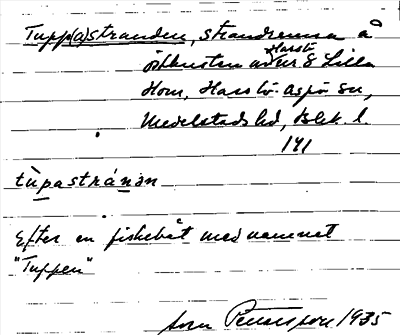 Tupp(a)stranden, strandremsa å
östkusten av Harstö nr 8 Lilla
Hom, Hasslö. Aspö sn,
Medelstads hd, Blek. l.
141
tùpastránən
Efter en fiskebåt med namnet
"Tuppen"
Sven Petersson 1935